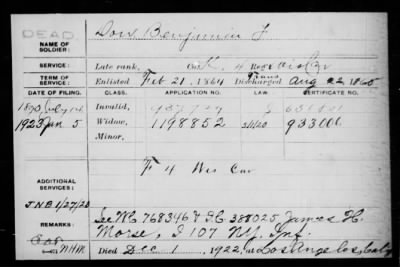 DEAD
NAME OF SOLDIER: Dow, Benjamin F
SERVICE: Late rank, 4 Regt
TERM OF SERVICE: Enlisted Feb 21, 1864 Discharged Aug 22, 1865
DATE OF FILING. CLASS. APPLICATION NO. CERTIFICATE NO.
Invalid,
1923 Jan 5 Widow, 1198852 933000
Minor,
F 4 Wis Cav
ADDITIONAL SERVICES:
JNB 1/27/23
See WC 768346 & IC 388025, James H.
REMARKS: Morse, I 107 NY. Inf.
Died Dec 1, 1922, at Los Angeles, Calif